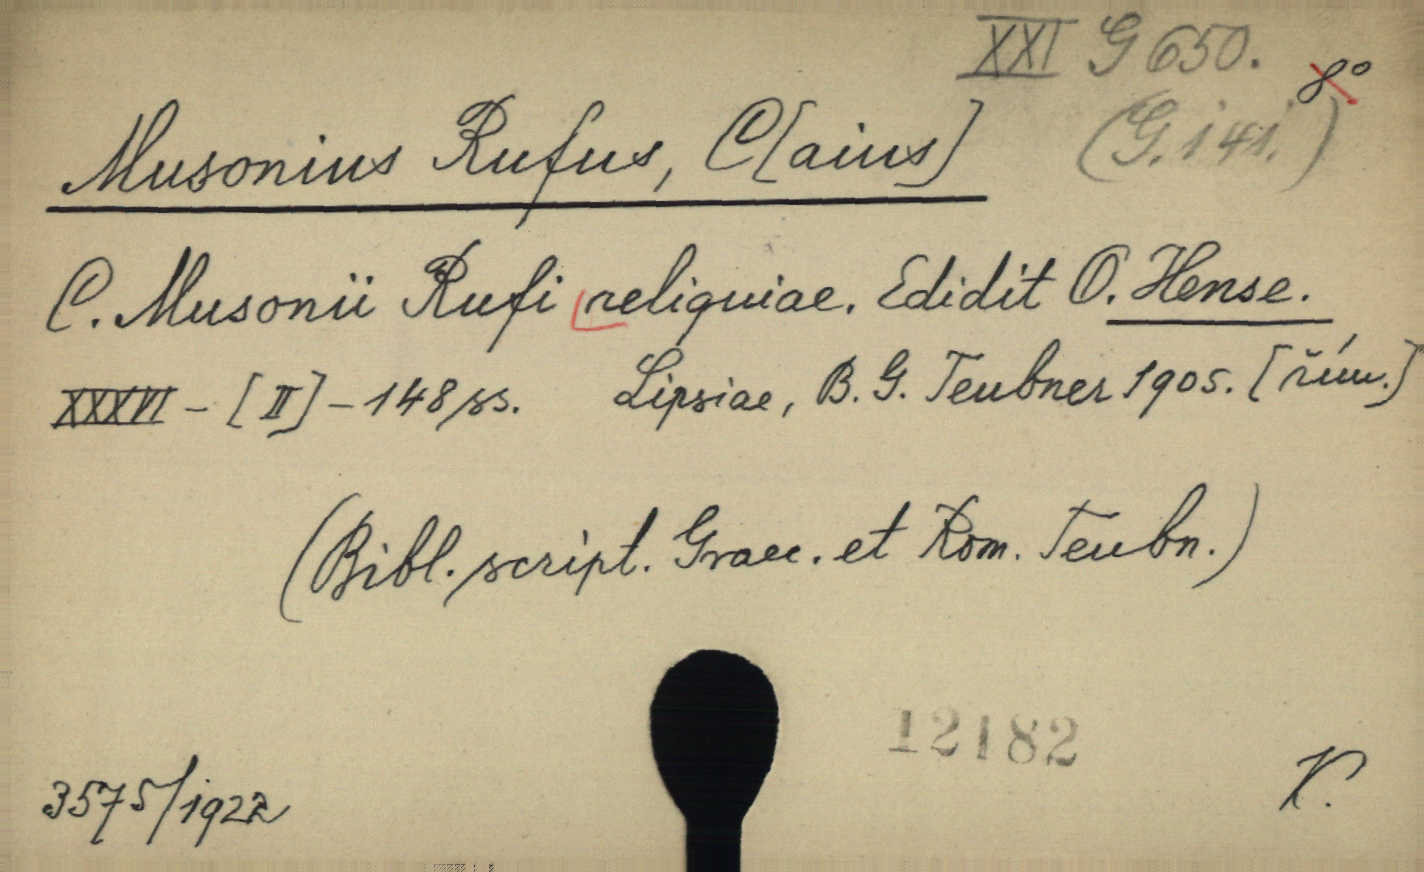 XXI G 650.
8°
Musonius Rufus, C[aius]
(G. 141.)
C. Musonii Rufi reliquiae. Edidit O. Hense.
XXXVI - [II] - 148 ss. Lipsiae, B. G. Teubner 1905. [řím.]
(Bibl. script. Graec. et Rom. Teubn.)
12182
3575/1922